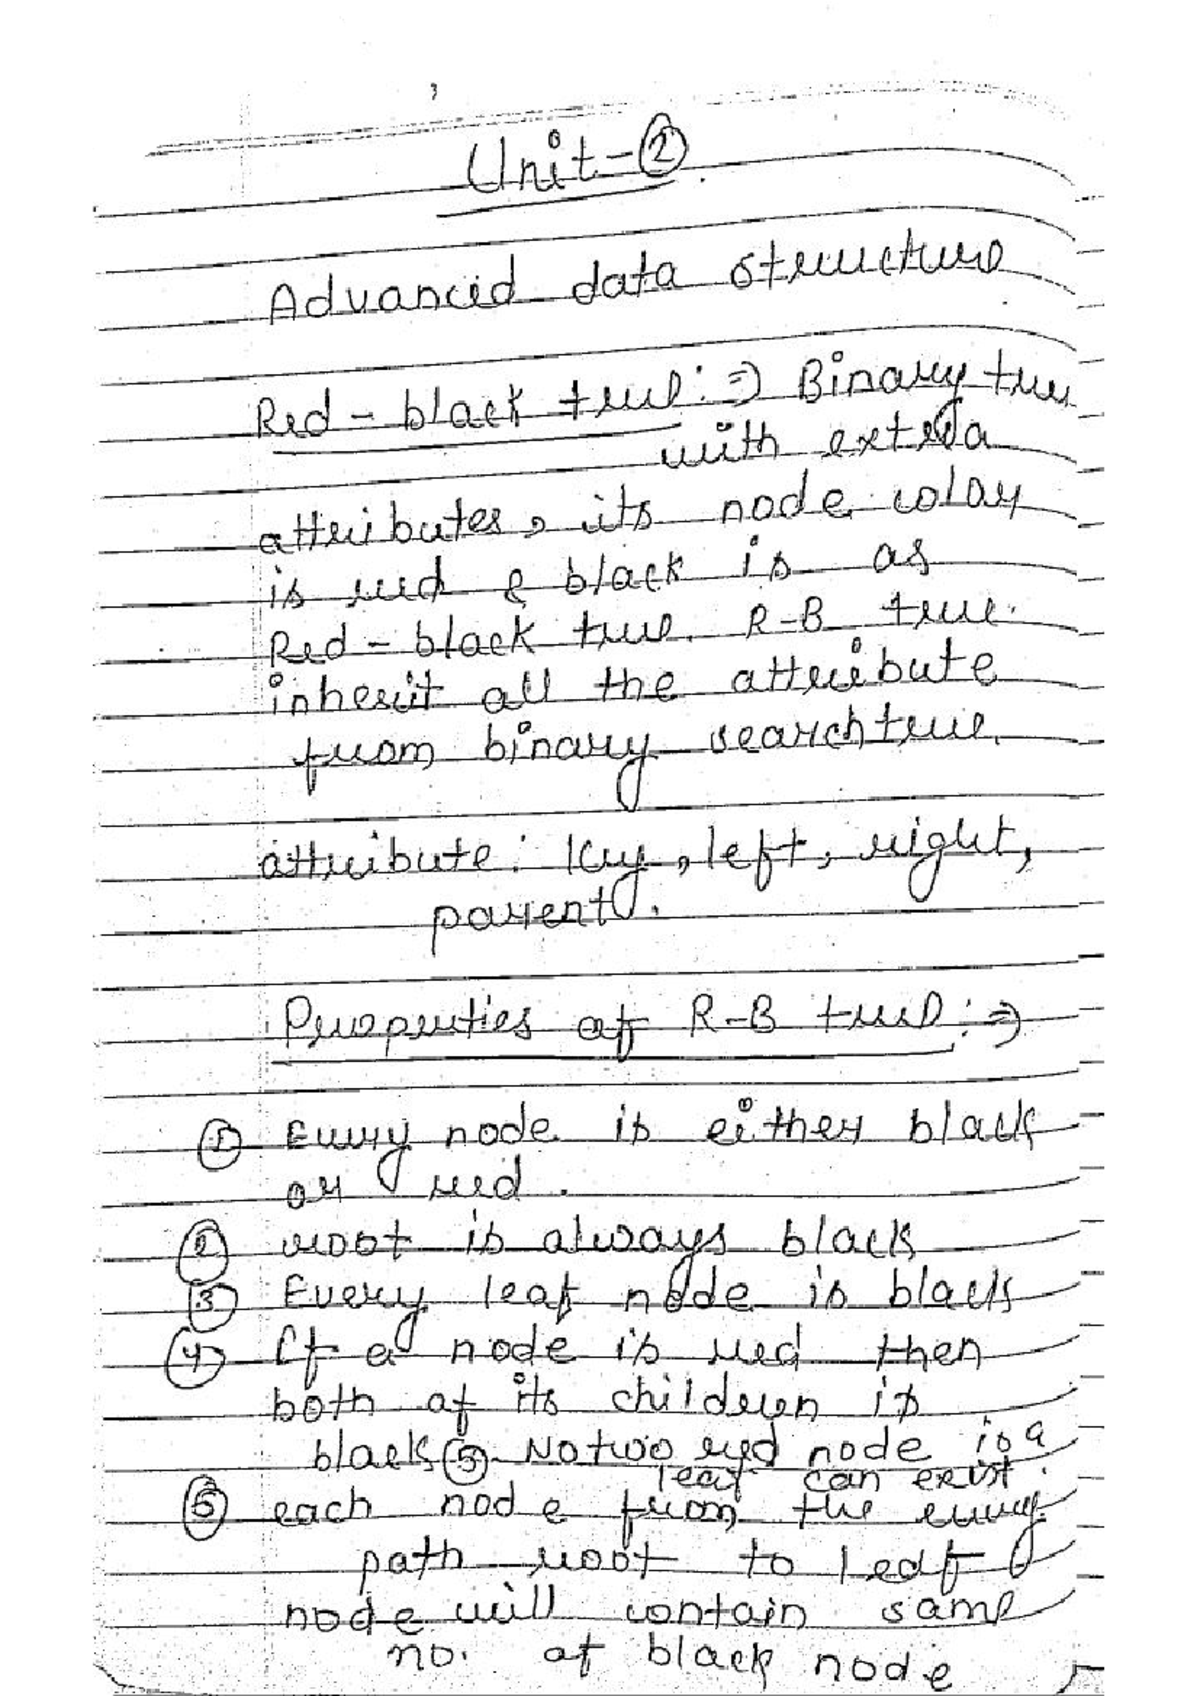 Unit-②
Advanced data structure
Red-black tree:⇒ Binary tree
with extra
attributes, its node color
is red & black is as
Red-black tree. R-B tree.
inherit all the attribute
from binary search tree.
attribute: key, left, right,
parent.
Properties of R-B tree:⇒
① Every node is either black
or red.
② root is always black
③ Every leaf node is black
④ If a node is red then
both of its children is
black ⑤ No two red node is a
leaf can exist.
⑤ each node from the every
path root to leaf
node will contain same
no. of black node